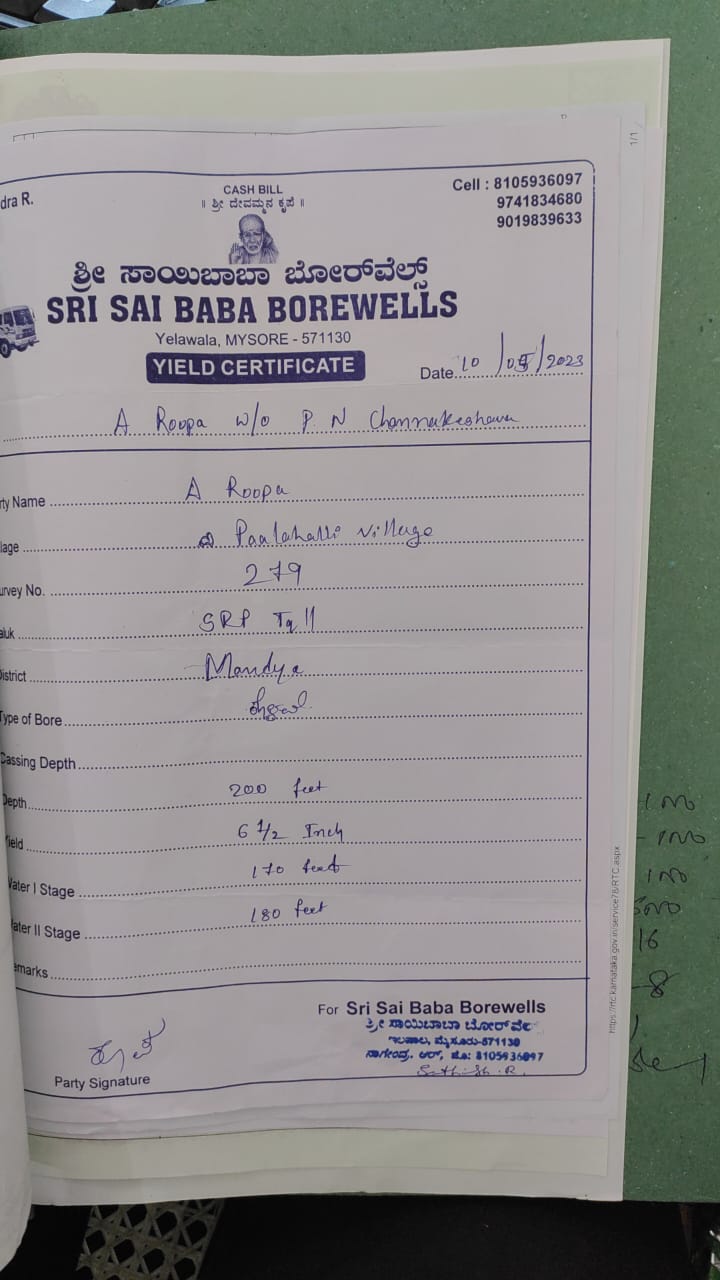 dra R.
CASH BILL
॥ ಶ್ರೀ ದೇವಮ್ಮನ ಕೃಪೆ ॥
Cell : 8105936097
9741834680
9019839633
ಶ್ರೀ ಸಾಯಿಬಾಬಾ ಬೋರ್‌ವೆಲ್ಸ್
SRI SAI BABA BOREWELLS
Yelawala, MYSORE - 571130
YIELD CERTIFICATE
Date 10/05/2023
A Roopa w/o P N Channakeshava
rty Name A Roopa
lage Paalahalli Village
urvey No. 279
aluk SRP Tq ||
istrict Mandya
Type of Bore
Cassing Depth
Depth 200 feet
ield 6 1/2 Inch
Water I Stage 170 feet
ater II Stage 180 feet
emarks
For Sri Sai Baba Borewells
ಶ್ರೀ ಸಾಯಿಬಾಬಾ ಬೋರ್‌ವೆಲ್
ಇಲವಾಲ, ಮೈಸೂರು-571130
ನಾಗೇಂದ್ರ. ಆರ್, ಮೊ: 8105936097
Sathish. R
Party Signature
1/1
https://rtc.karnataka.gov.in/service78/RTC.aspx
16
-8